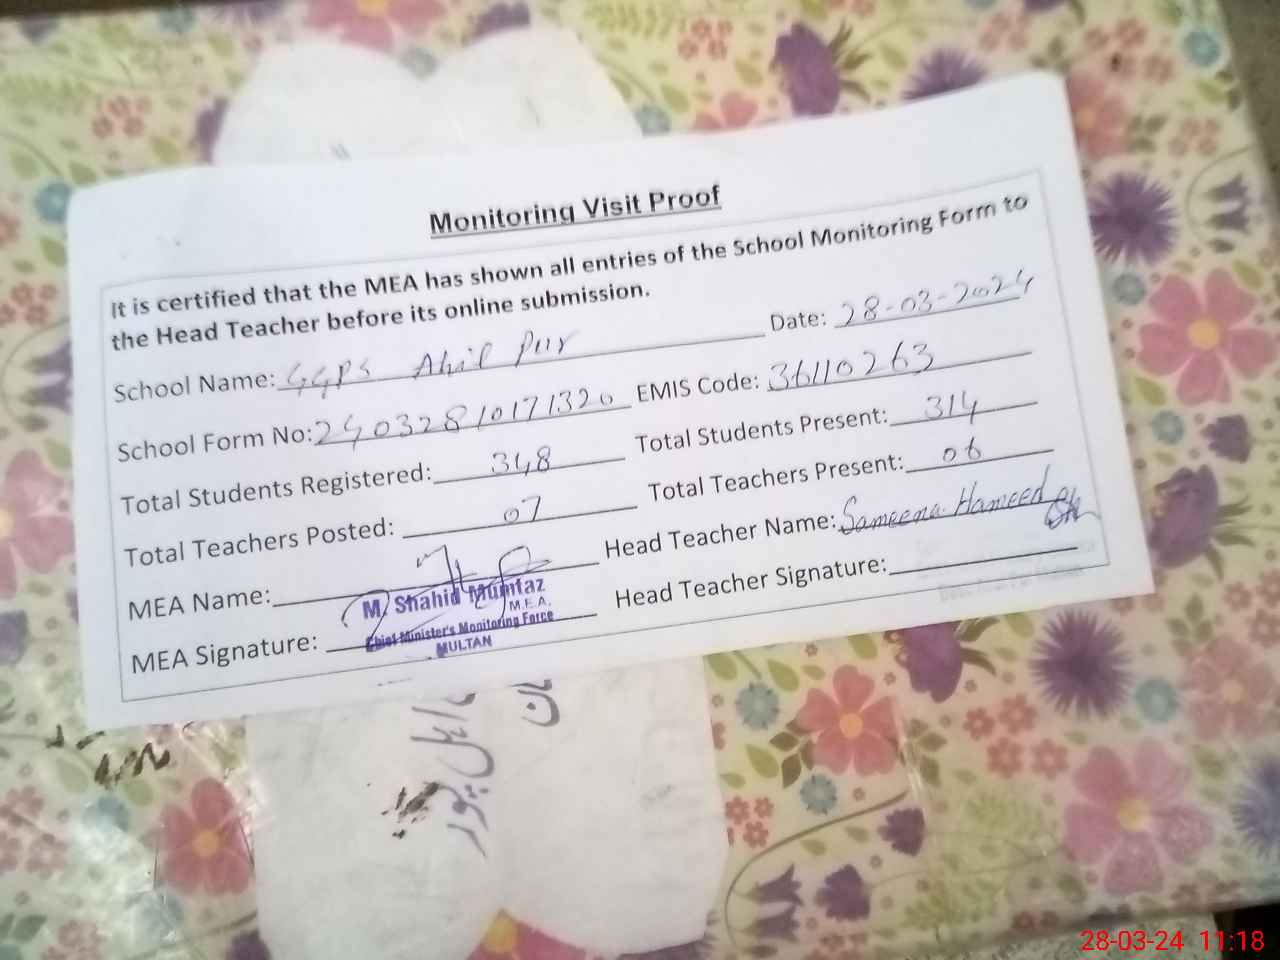 Monitoring Visit Proof
It is certified that the MEA has shown all entries of the School Monitoring Form to
the Head Teacher before its online submission.
School Name: GGPS Ahil Pur Date: 28-03-2024
School Form No: 24032810171320 EMIS Code: 36110263
Total Students Registered: 348 Total Students Present: 314
Total Teachers Posted: 07 Total Teachers Present: 06
MEA Name: Head Teacher Name: Sameena Hameed
MEA Signature: Head Teacher Signature:
M. Shahid Mumtaz
M.E.A.
Chief Minister's Monitoring Force
MULTAN
28-03-24 11:18